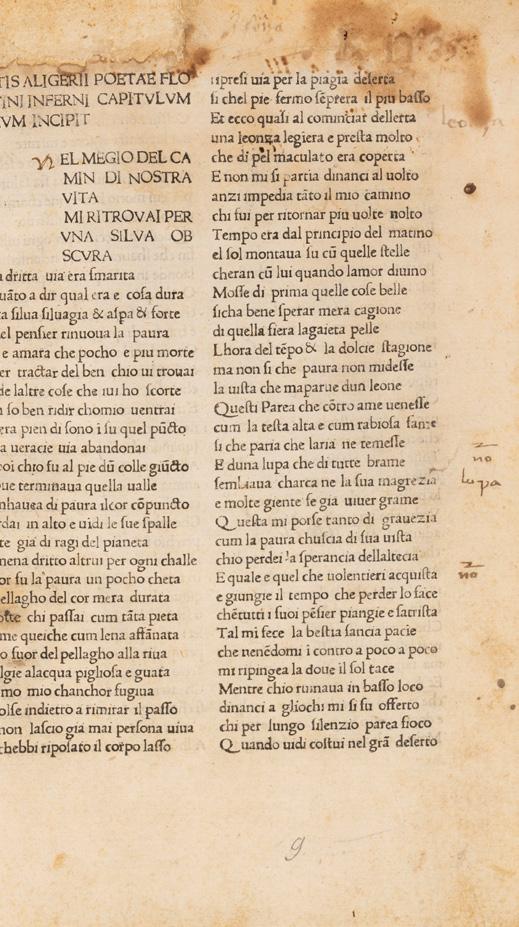 TIS ALIGERII POETAE FLO
TINI INFERNI CAPITVLVM
VM INCIPIT
N EL MEGIO DEL CA
MIN DI NOSTRA
VITA
MI RITROVAI PER
VNA SILVA OB
SCVRA
dritta uia era ſmarita
uãto a dir qual era e coſa dura
ſilua ſiluagia & aſpa & forte
el penſier rinuoua la paura
e amara che pocho e piu morte
er tractar del ben chio ui trouai
de laltre coſe che iui ho ſcorte
ſo ben ridir chomio uentrai
era pien di ſono i ſu quel pũcto
a ueracie uia abandonai
oi chio fu al pie dũ colle giũcto
ue terminaua quella ualle
nhauea di paura ilcor cõpuncto
rdai in alto e uidi le ſue ſpalle
te gia di ragi del pianeta
mena dritto altrui per ogni challe
or fu la paura un pocho cheta
ellagho del cor mera durata
otte chi paſſai cum tãta pieta
me queiche cum lena affãnata
o fuor del pellagho alla riua
lgie alacqua pigliofa e guata
mo mio chanchor fugiua
olſe indietro a rimirar il paſſo
non laſcio gia mai perſona uiua
chebbi ripoſato il corpo laſſo
ripreſi uia per la piagia deſerta
ſi chel pie fermo ſẽprera il piu baſſo
Et ecco quaſi al cominciar dellerta
una leonza legiera e preſta molto
che di pel maculato era coperta
E non mi ſi partia dinanci al uolto
anzi impedia tãto il mio camino
chi fui per ritornar piu uolte uolto
Tempo era dal principio del matino
el ſol montaua ſu cũ quelle ſtelle
cheran cũ lui quando lamor diuino
Moſſe di prima quelle coſe belle
ſicha bene ſperar mera cagione
di quella fiera lagaieta pelle
Lhora del tẽpo & la dolcie ſtagione
ma non ſi che paura non mideſſe
la uiſta che maparue dun leone
Queſti Parea che cõtro ame ueneſſe
cum la teſta alta e cum rabioſa fame
ſi che paria che laria ne temeſſe
E duna lupa che di tutte brame
ſemblaua charca ne la ſua magrezia
e molte giente fe gia uiuer grame
Queſta mi porſe tanto di grauezia
cum la paura chuſcia di ſua uiſta
chio perdei la ſperancia dellaltecia
E quale e quel che uolentieri acquiſta
e giungie il tempo che perder lo face
chẽtutti i ſuoi pẽſier piangie e ſatriſta
Tal mi fece la beſtia ſancia pacie
che nenẽdomi i contro a poco a poco
mi ripingea la doue il ſol tace
Mentre chio ruinaua in baſſo loco
dinanci a gliochi mi ſi fu offerto
chi per lungo ſilenzio parea fioco
Quando uidi coſtui nel grã deſerto
no
lupa
no
9